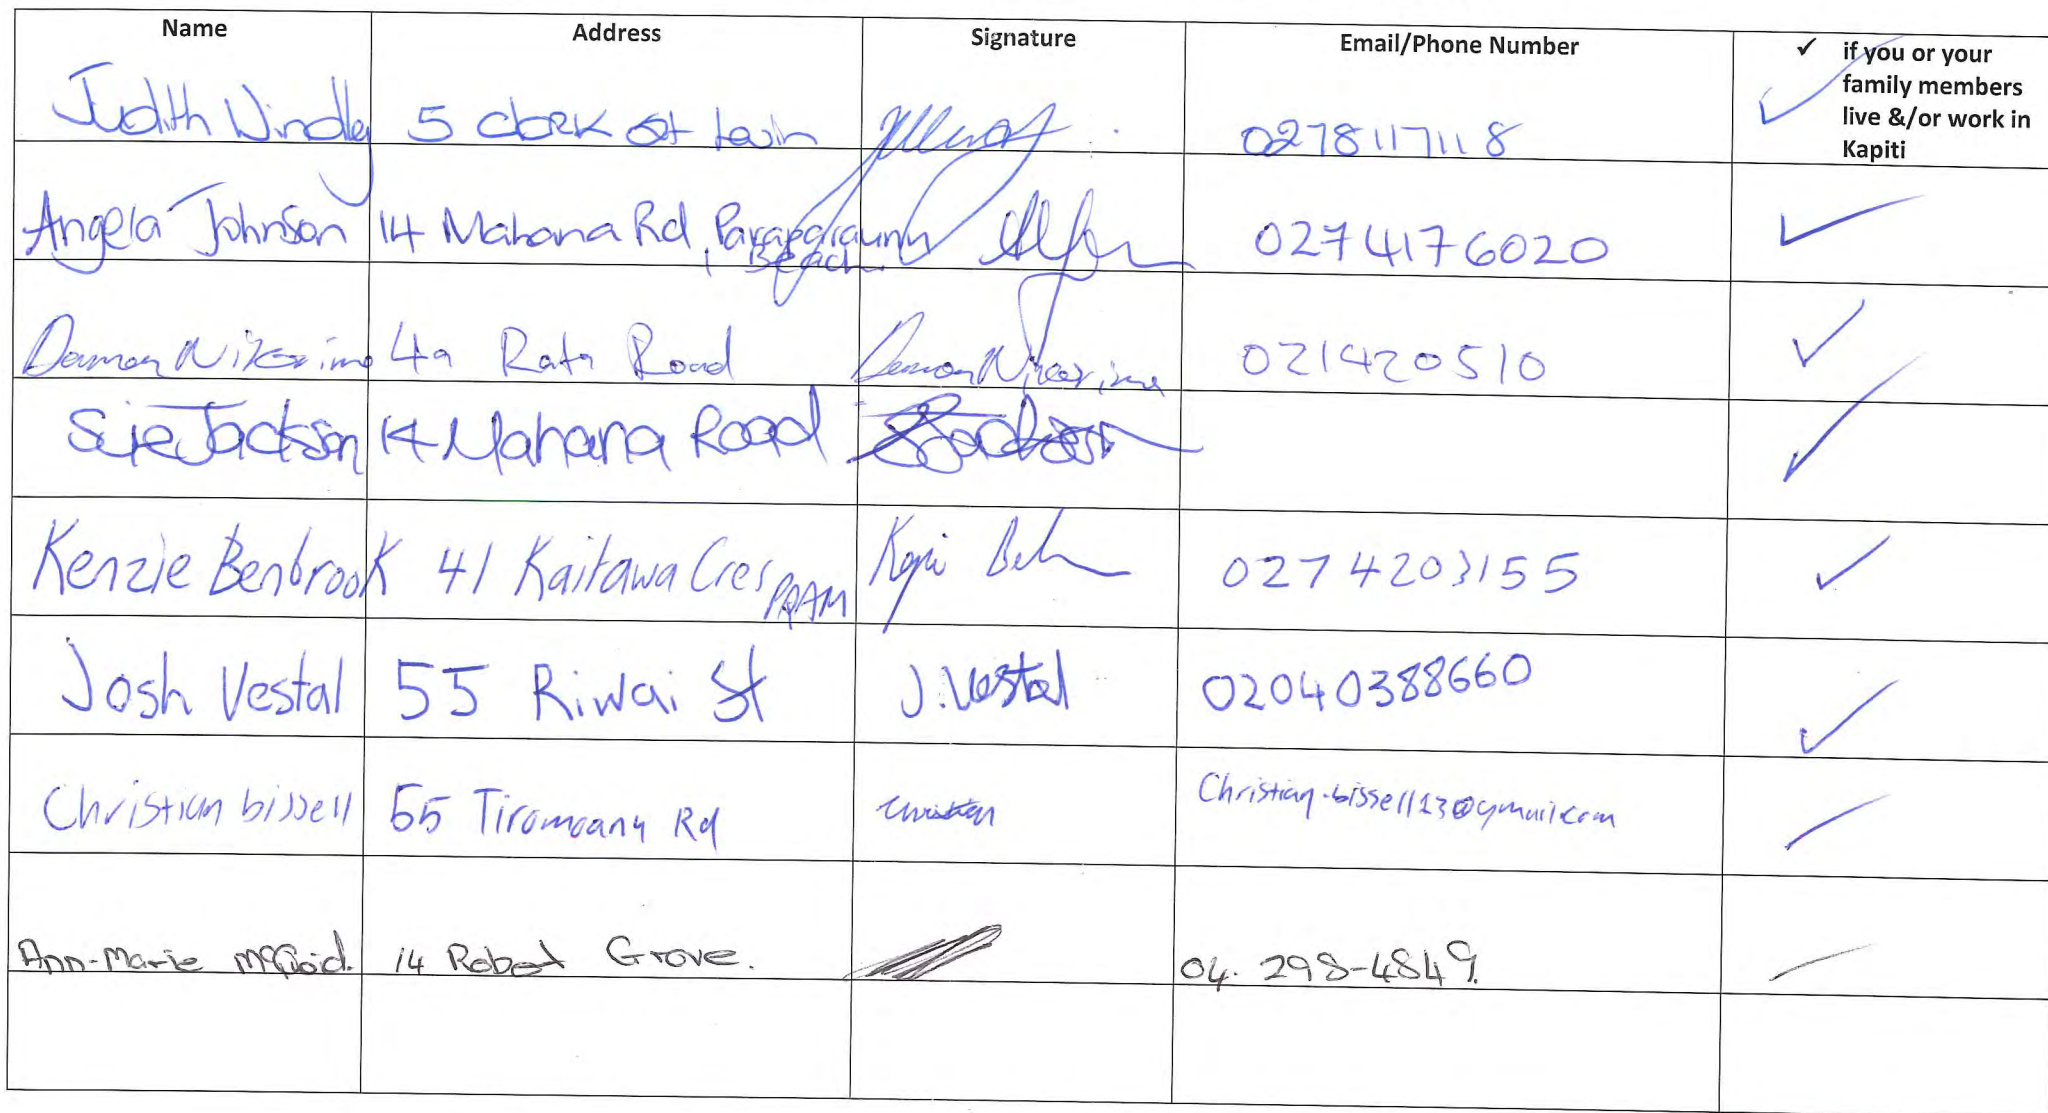 Name Address Signature Email/Phone Number ✓ if you or your
family members
live &/or work in
Kapiti
Judith 5 St Levin 0278117118 ✓
Angela Johnson 14 Mahana Rd, Paraparaumu 0274176020 ✓
Beach
Damon Nikorima 4a Rata Road Damon Nikorima 021420510 ✓
Sue Jackson 14 Mahana Road ✓
Kenzie Benbrook 41 Kaitawa Cres PRAM 0274203155 ✓
Josh Vestal 55 Riwai St J. Vestal 02040388660 ✓
Christian bissell 55 Rd Christian Christian.bissell13@gmail.com
Ann-Marie 14 Robert Grove. 04. 298-4849.